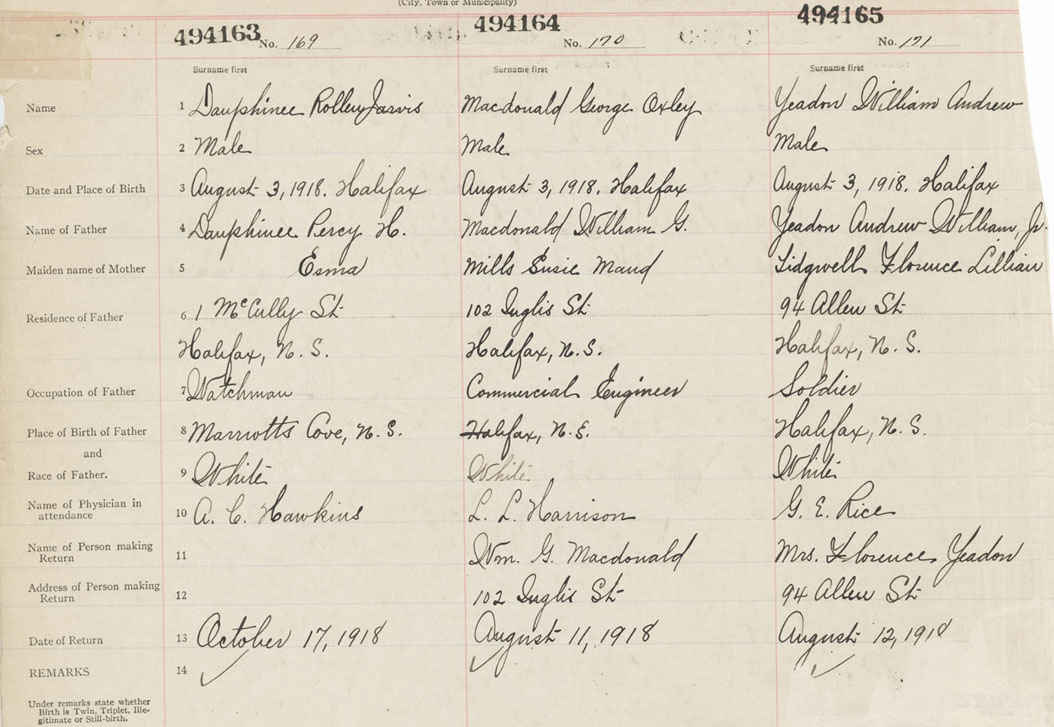 (City, Town or Municipality)
494163 No. 169 494164 No. 170 494165 No. 171
Surname first Surname first Surname first
Name 1 Dauphinee Rolley Jarvis Macdonald George Oxley Yeadon William Andrew
Sex 2 Male Male Male
Date and Place of Birth 3 August 3, 1918. Halifax August 3, 1918. Halifax August 3, 1918. Halifax
Name of Father 4 Dauphinee Percy H. Macdonald William G. Yeadon Andrew William, Jr.
Maiden name of Mother 5 Esma Mills Susie Maud Tidgwell Florence Lillian
Residence of Father 6 1 McCully St 102 Inglis St 94 Allen St
Halifax, N.S. Halifax, N.S. Halifax, N.S.
Occupation of Father 7 Watchman Commercial Engineer Soldier
Place of Birth of Father 8 Marriotts Cove, N.S. Halifax, N.S. Halifax, N.S.
and
Race of Father. 9 White White White
Name of Physician in
attendance 10 A. C. Hawkins L. L. Harrison G. E. Rice
Name of Person making
Return 11 Wm. G. Macdonald Mrs. Florence Yeadon
Address of Person making
Return 12 102 Inglis St 94 Allen St
Date of Return 13 October 17, 1918 August 11, 1918 August 12, 1918
REMARKS 14
Under remarks state whether
Birth is Twin, Triplet, Ille-
gitimate or Still-birth.